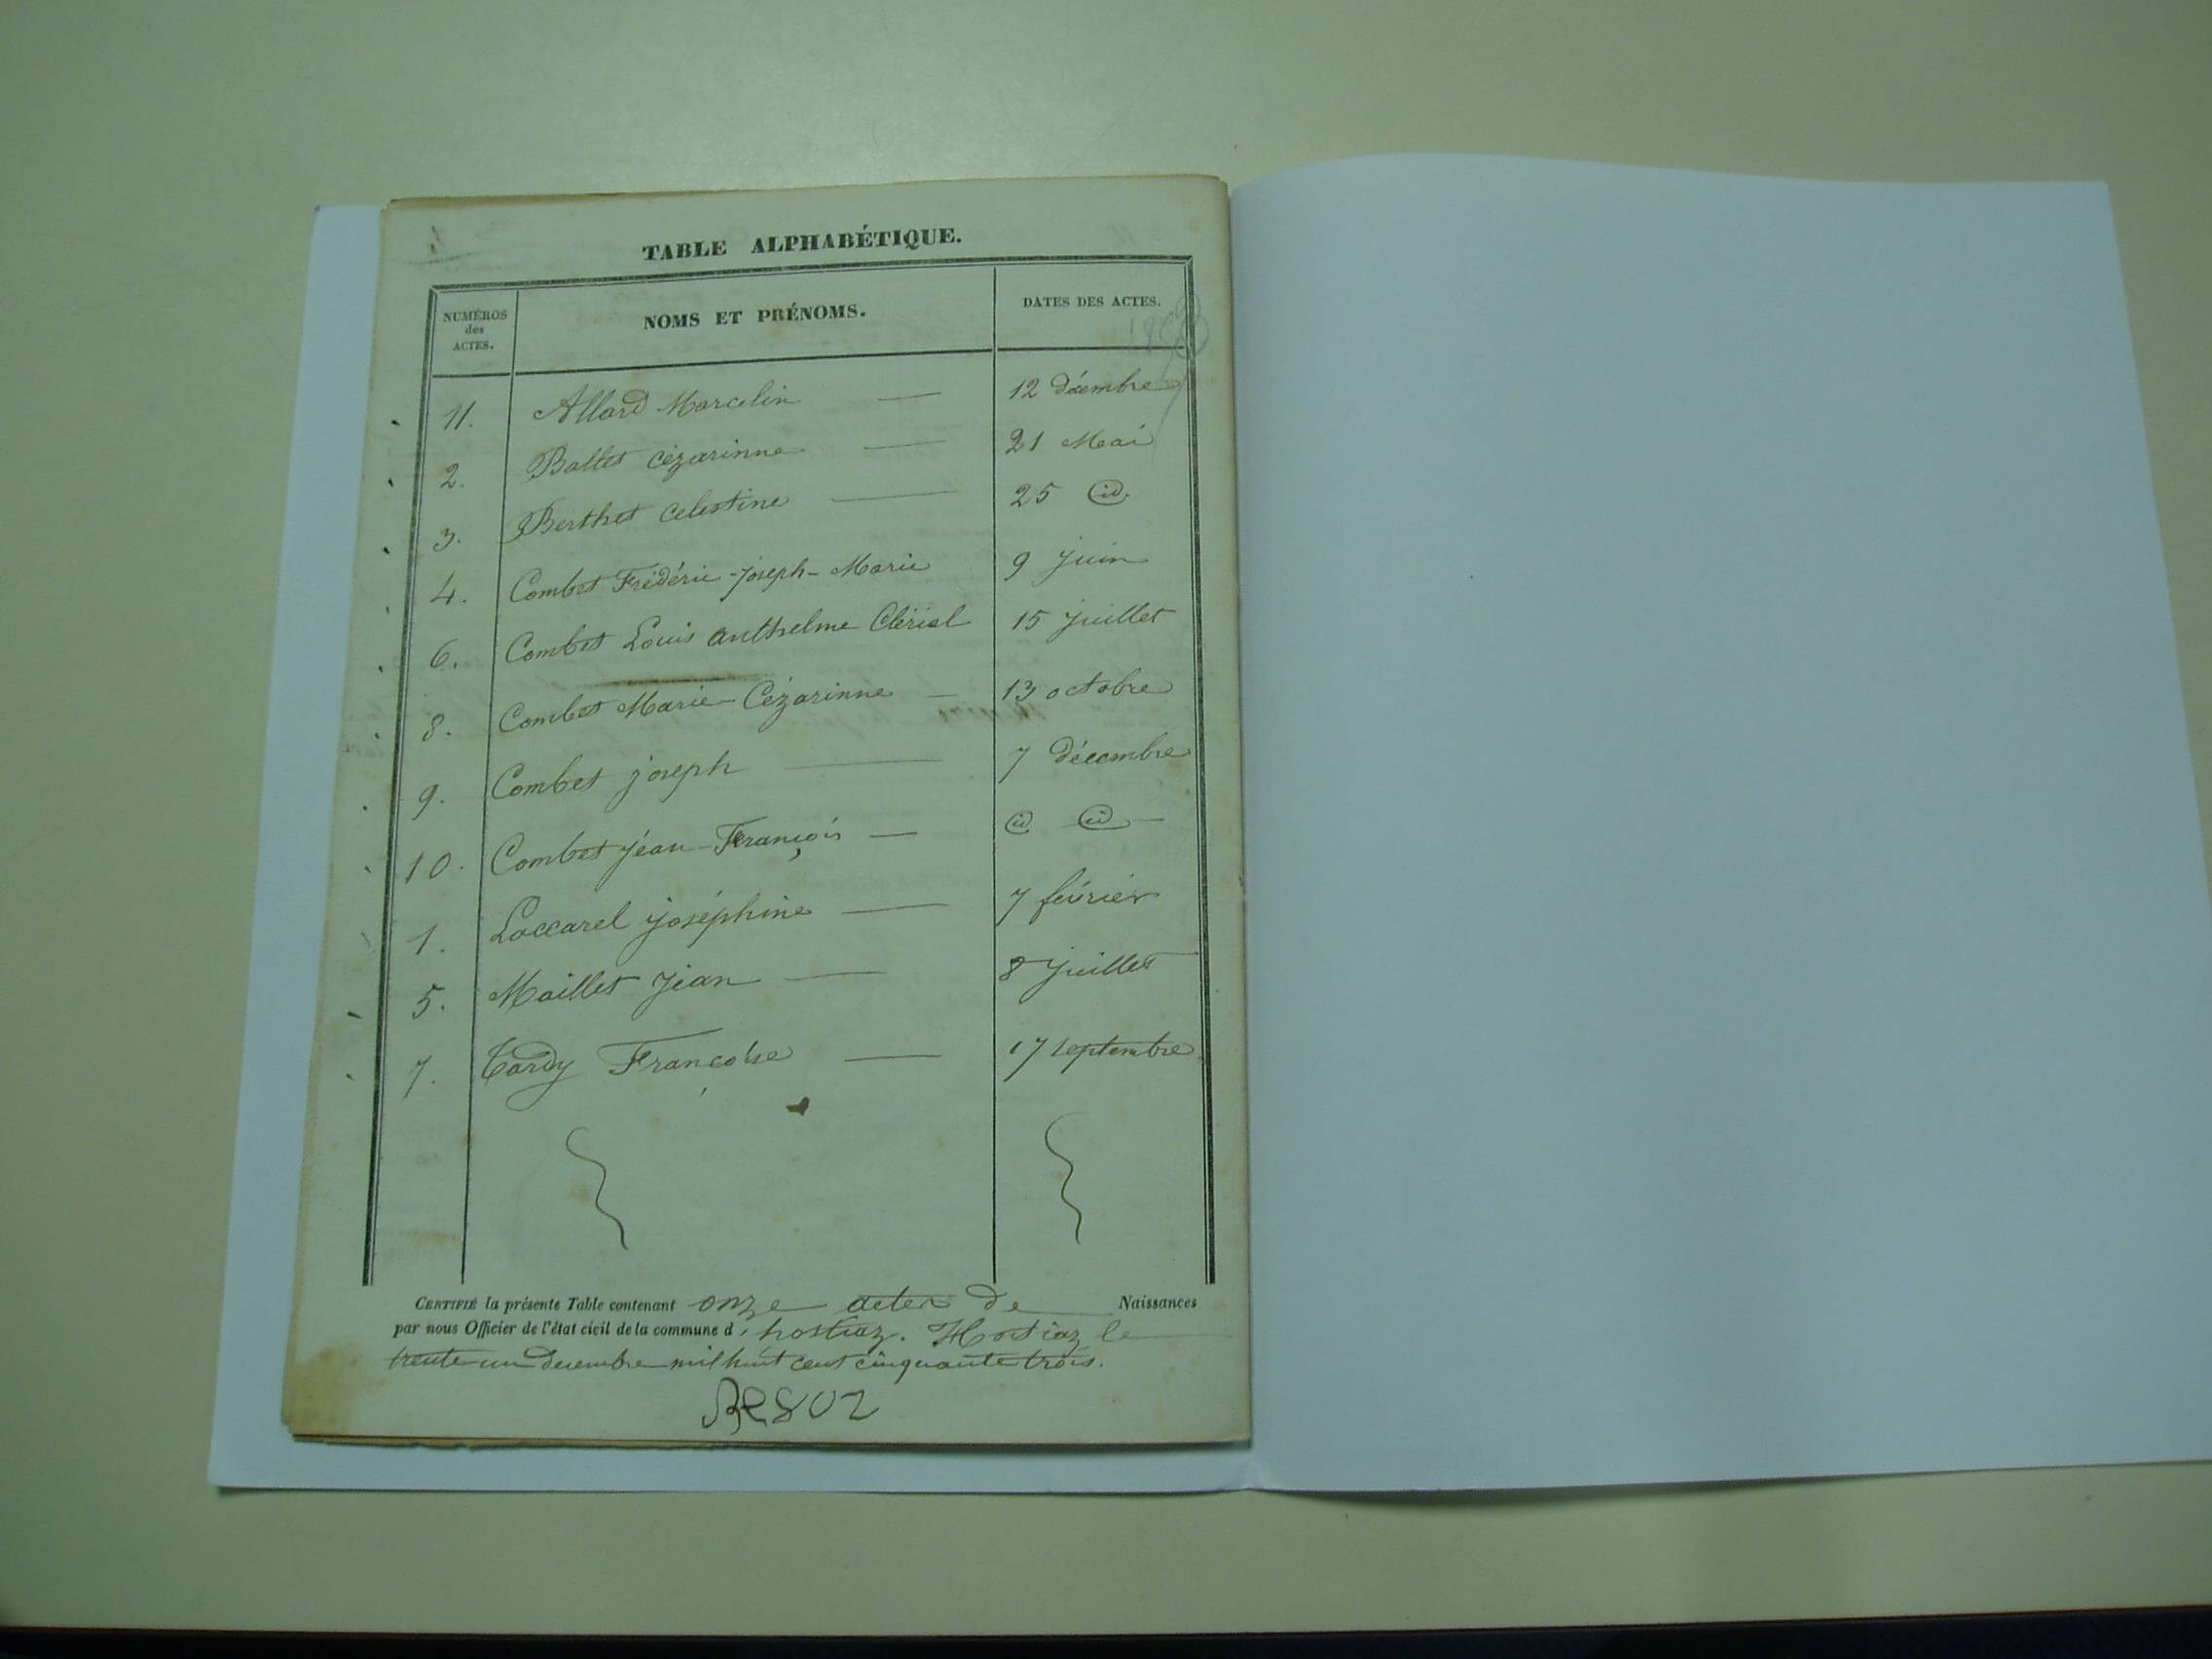 TABLE ALPHABÉTIQUE.
NUMÉROS des ACTES. NOMS ET PRÉNOMS. DATES DES ACTES.
1853
11. Allard Marcelin 12 décembre
2. Ballet Cézarinne 21 Mai
3. Berthet Celestine 25 id
4. Combet Frédéric-Joseph-Marie 9 juin
6. Combet Louis Anthelme Clériel 15 juillet
8. Combet Marie-Cézarinne 13 octobre
9. Combet joseph 7 décembre
10. Combet Jéan-François id id
1. Laccarel joséphine 7 février
5. Maillet Jéan 8 juillet
7. Tardy Francoise 17 septembre
CERTIFIÉ la présente Table contenant onze actes de Naissances
par nous Officier de l'état civil de la commune d'hostiaz. Hostiaz le
trente un decembre mil huit cent cinquante trois.